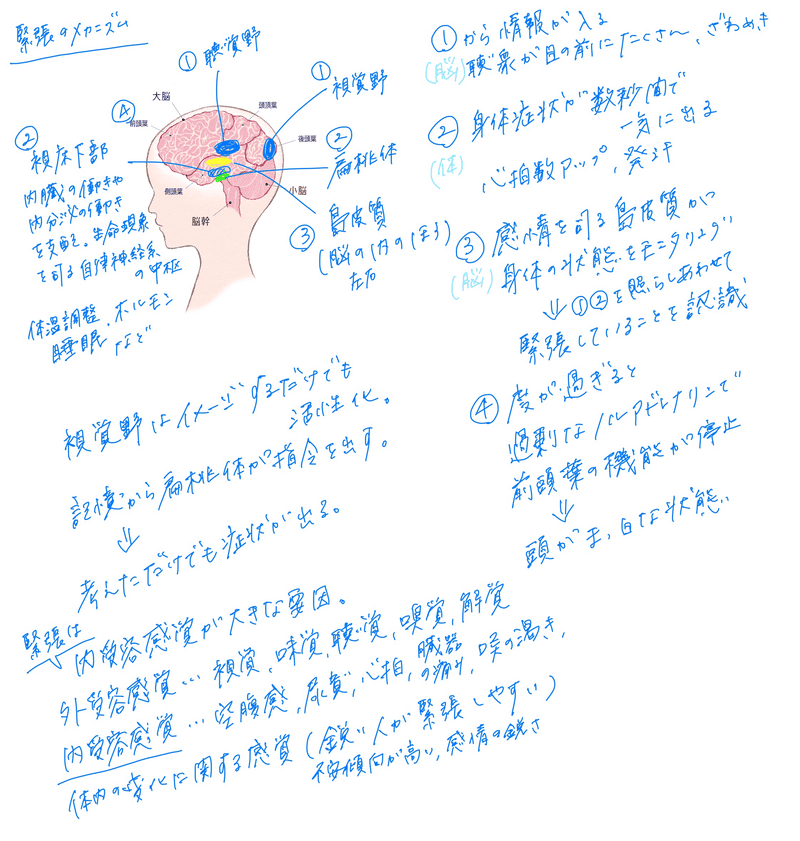 緊張のメカニズム
① 聴覚野
① 視覚野
大脳
④
前頭葉
頭頂葉
後頭葉
側頭葉
小脳
脳幹
② 視床下部
内臓の働きや
内分泌の働き
を支配。生命現象
を司る自律神経系
の中枢
体温調整、
睡眠、ホルモン
など
② 扁桃体
③ 島皮質
(脳の内のほう)
左右
① から情報が入る
(脳) 聴衆が目の前にたくさん、ざわめき
② 身体症状が数秒間で
一気に出る
(体)
心拍数アップ、発汗
③ 感情を司る島皮質が
(脳) 身体の状態をモニタリング
⇓ ①②を照らしあわせて
緊張していることを認識
④ 度が過ぎると
過剰なノルアドレナリンで
前頭葉の機能が停止
⇓
頭がまっ白な状態
視覚野はイメージするだけでも
活性化。
記憶から扁桃体が指令を出す。
⇓
考えただけでも症状が出る。
緊張は
内受容感覚が大きな要因。
外受容感覚… 視覚、味覚、聴覚、嗅覚、解覚
内受容感覚… 空腹感、尿意、心拍、臓器の痛み、喉の渇き、
体内の変化に関する感覚(鋭い人が緊張しやすい)
不安傾向が高い、感情の鋭さ